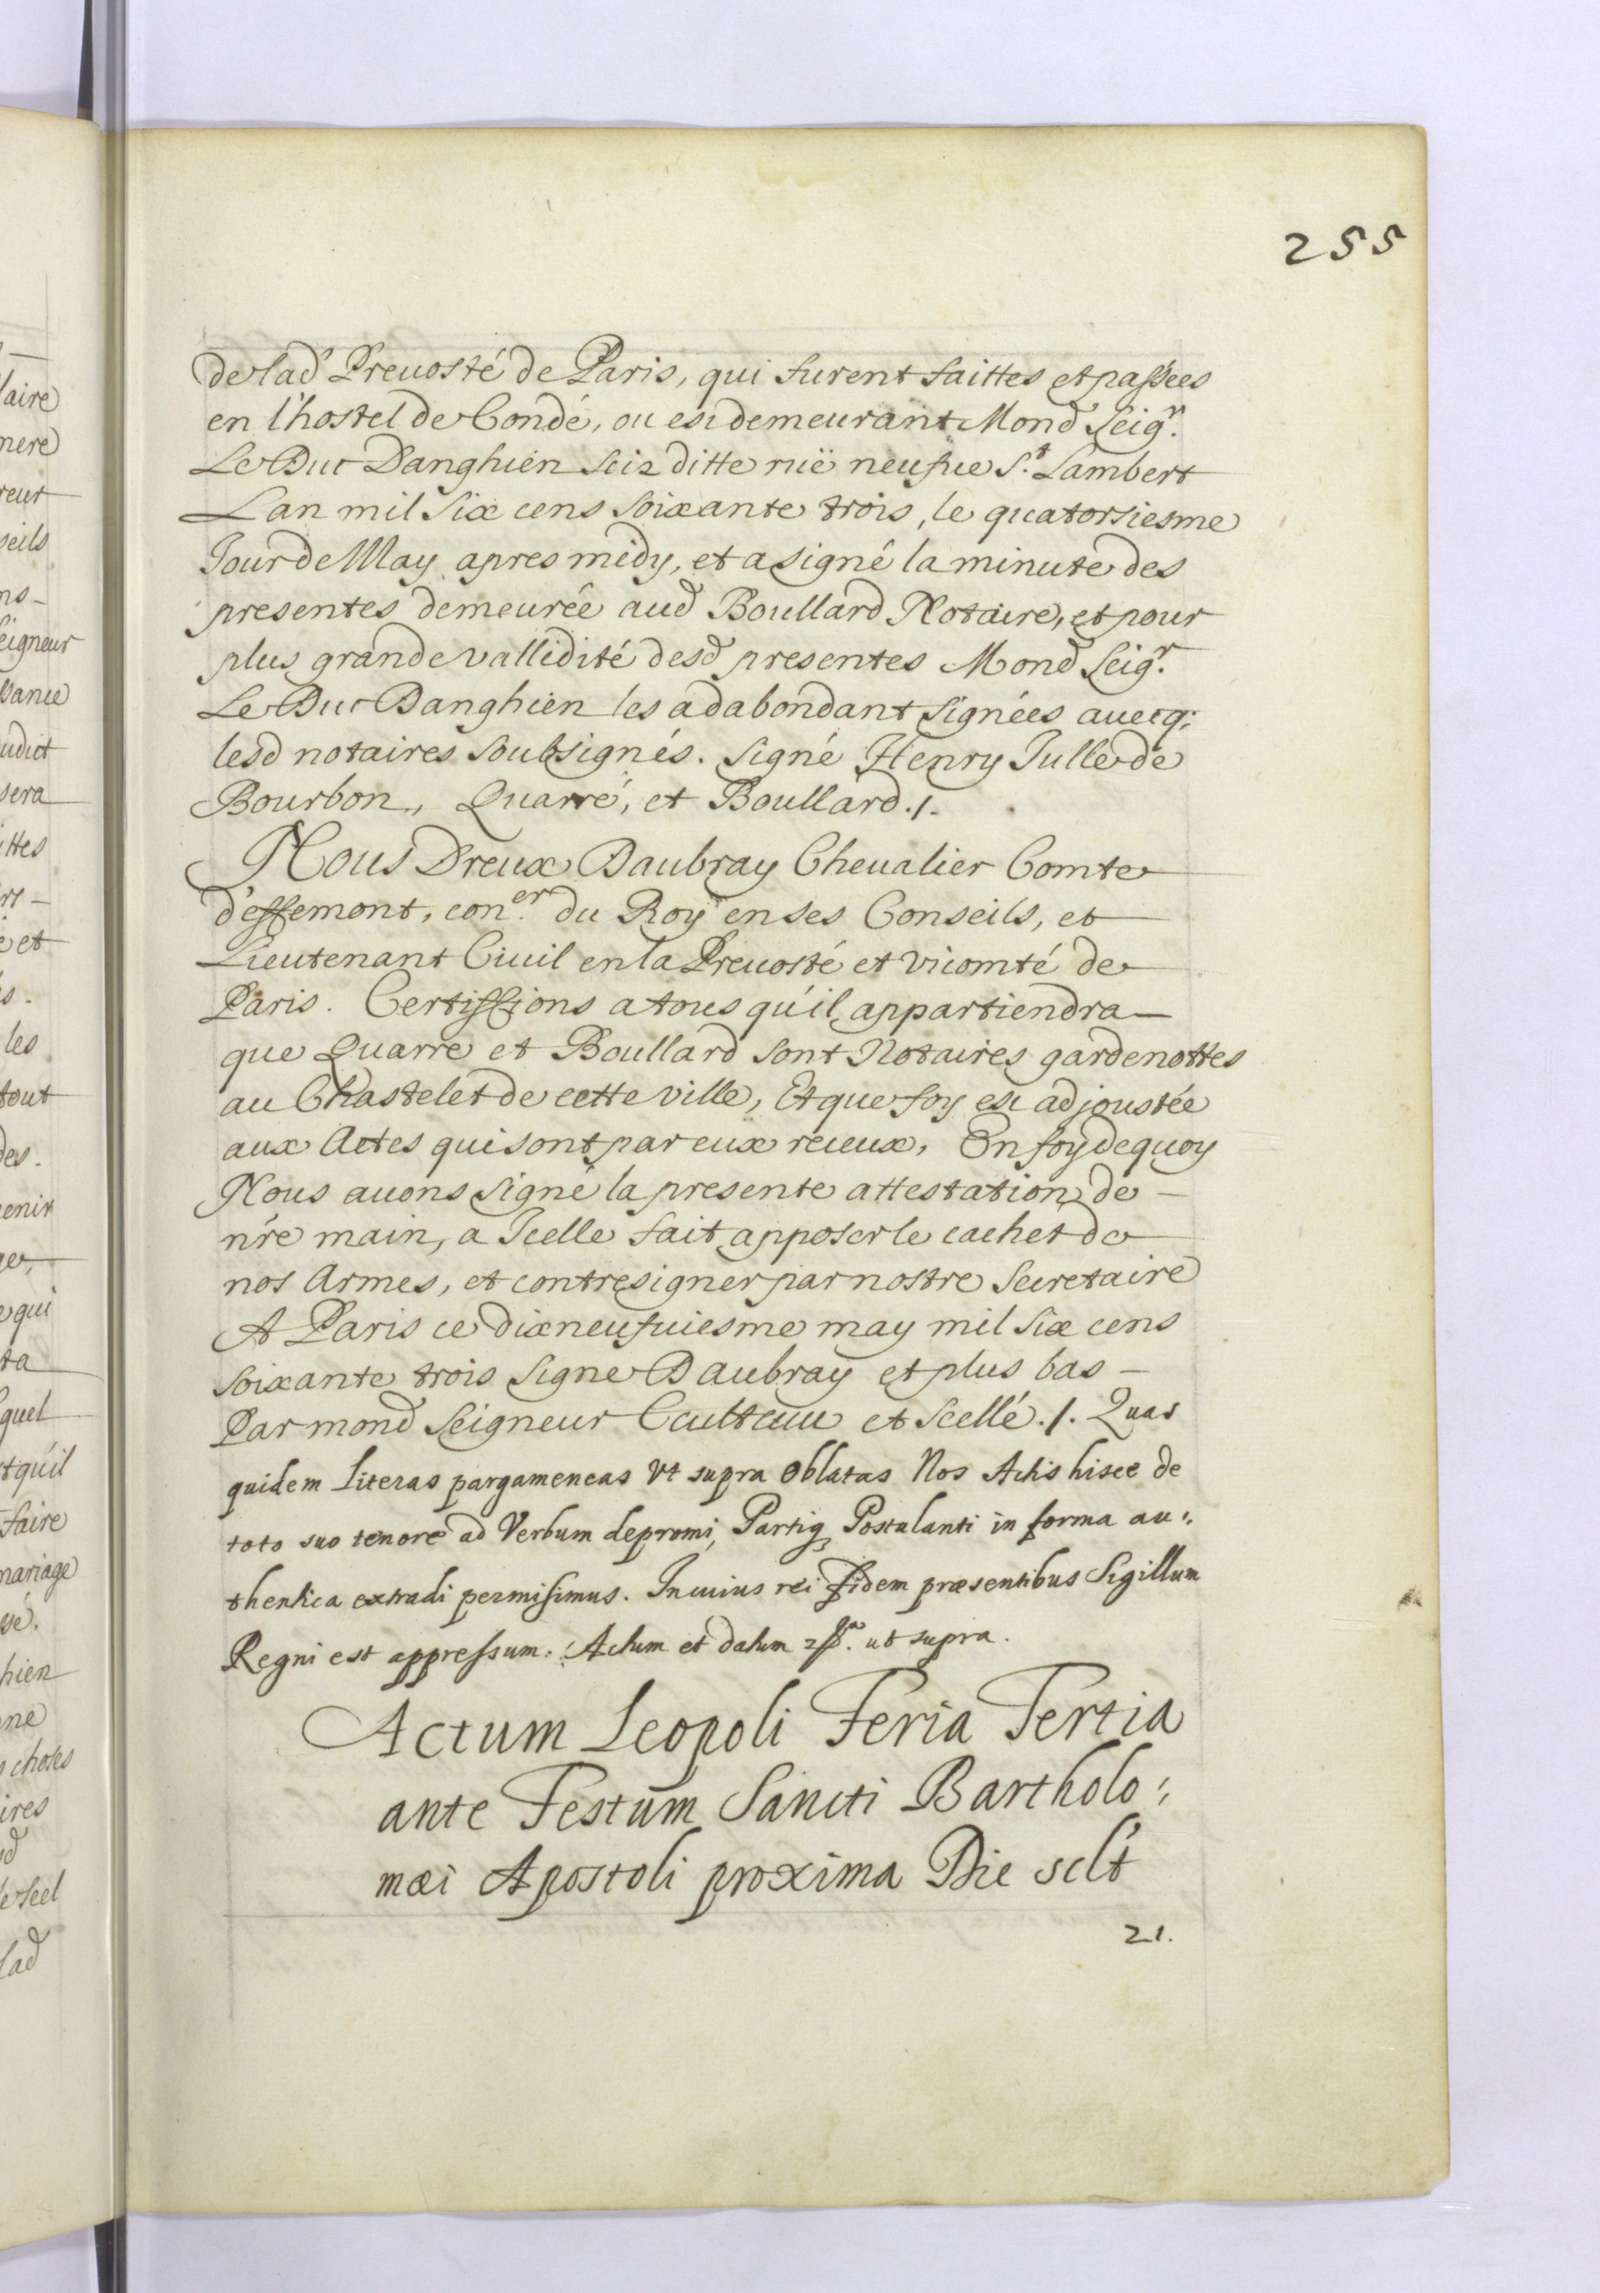 255
de lad Preuosté de Paris, qui furent faittes et passées
en l'hostel de Condé, ou est demeurant Mond Seigr.
Le Duc Danghien scis ditte ruë neufue St. Lambert
Lan mil six cens soixante trois, le quatorsiesme
Jour de May apres midy, et a signé la minute des
presentes demeurée aud Boullard Notaire, et pour
plus grande vallidité desd presentes Mond Seigr.
Le Duc Danghien les a dabondant signées auecq;
lesd notaires soubsignés. Signé Henry Julle de
Bourbon, Quarré, et Boullard ./.
Nous Dreux Daubray Cheualier Comte
d'effemont, coner. du Roy en ses Conseils, et
Lieutenant Ciuil en la Preuosté et vicomté de
Paris. Certiffions a tous qu'il appartiendra
que Quarre et Boullard sont Notaires gardenottes
au Chastelet de cette ville, Et que foy est adjoustée
aux Actes qui sont par eux receux, En foy de quoy
Nous auons signé la presente attestation de
n're main, a Icelle fait apposer le cachet de
nos Armes, et contresigner par nostre Secretaire
A Paris ce dixneufuiesme may mil six cens
soixante trois signe Daubray et plus bas
Par mond Seigneur et scellé ./. Quas
quidem Literas pargameneas Vt supra oblatas Nos Actis hisce de
toto suo tenore ad Verbum depromi, Partiq; Postulanti in forma au:
thentica extradi permisimus. In cuius rei fidem præsentibus Sigillum
Regni est appressum. Actum et datum ut supra.
Actum Leopoli Feria Tertia
ante Festum Sancti Bartholo:
mæi Apostoli proxima Die sclt
21.
laire
mere
reur
seils
ns
eigneur
sance
udict
sera
ittes
et
les
tout
des.
enir
qui
ta
quel
qu'il
faire
mariage
sé.
hien
ne
choses
ires
scel
lad